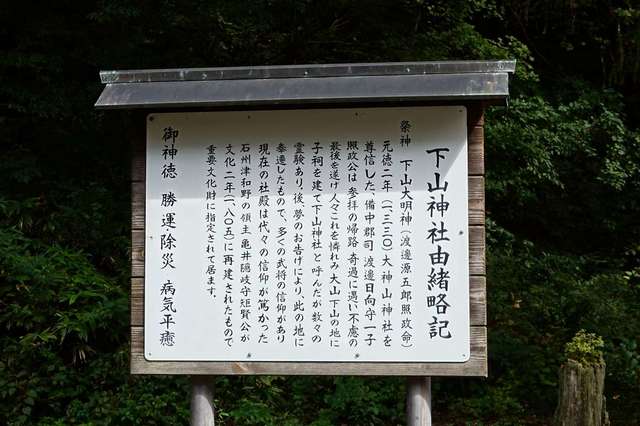 下山神社由緒略記
祭神　下山大明神（渡邊源五郎照政命）
元徳二年（一、三三〇）大神山神社を
尊信した、備中郡司、渡邊日向守一子
照政公は、参拝の帰路、奇過に遇い不慮の
最後を遂げ人々これを憐れみ、大山下山の地に
子祠を建て下山神社と呼んだが数々の
霊験あり、後、夢のお告げにより、此の地に
奉遷したもので、多くの武将の信仰があり
現在の社殿は代々の信仰が篤かった
石州津和野の領主亀井隠岐守矩賢公が
文化二年（一、八〇五）に再建されたもので
重要文化財に指定されて居ます。
御神徳　勝運除災　病気平癒